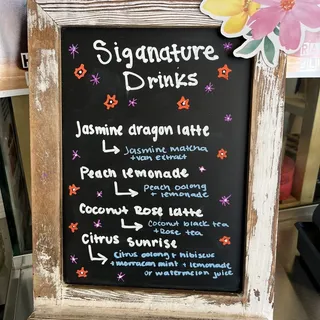 Siganature
Drinks
Jasmine dragon latte
Jasmine matcha
+van extract
Peach lemonade
Peach oolong
+ lemonade
Coconut Rose latte
Coconut black tea
+ Rose tea
Citrus Sunrise
Citrus oolong + hibiscus
+ morracan mint + lemonade
or watermelon juice